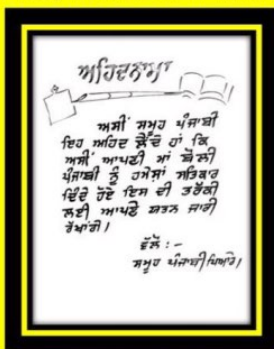 ਅਹਿਦਨਾਮਾ
ਅਸੀਂ ਸਮੂਹ ਪੰਜਾਬੀ
ਇਹ ਅਹਿਦ ਲੈਂਦੇ ਹਾਂ ਕਿ
ਅਸੀਂ ਆਪਣੀ ਮਾਂ ਬੋਲੀ
ਪੰਜਾਬੀ ਨੂੰ ਹਮੇਸ਼ਾਂ ਸਤਿਕਾਰ
ਦਿੰਦੇ ਹੋਏ ਇਸ ਦੀ ਤਰੱਕੀ
ਲਈ ਆਪਣੇ ਯਤਨ ਜਾਰੀ
ਰੱਖਾਂਗੇ।
ਵੱਲੋਂ :-
ਸਮੂਹ ਪੰਜਾਬੀ ਪਿਆਰੇ।